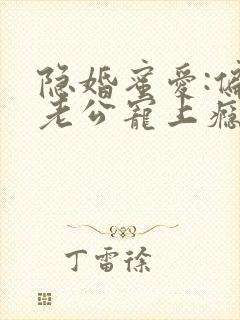 隐婚蜜爱:偏
老公宠上瘾
丁雷徐